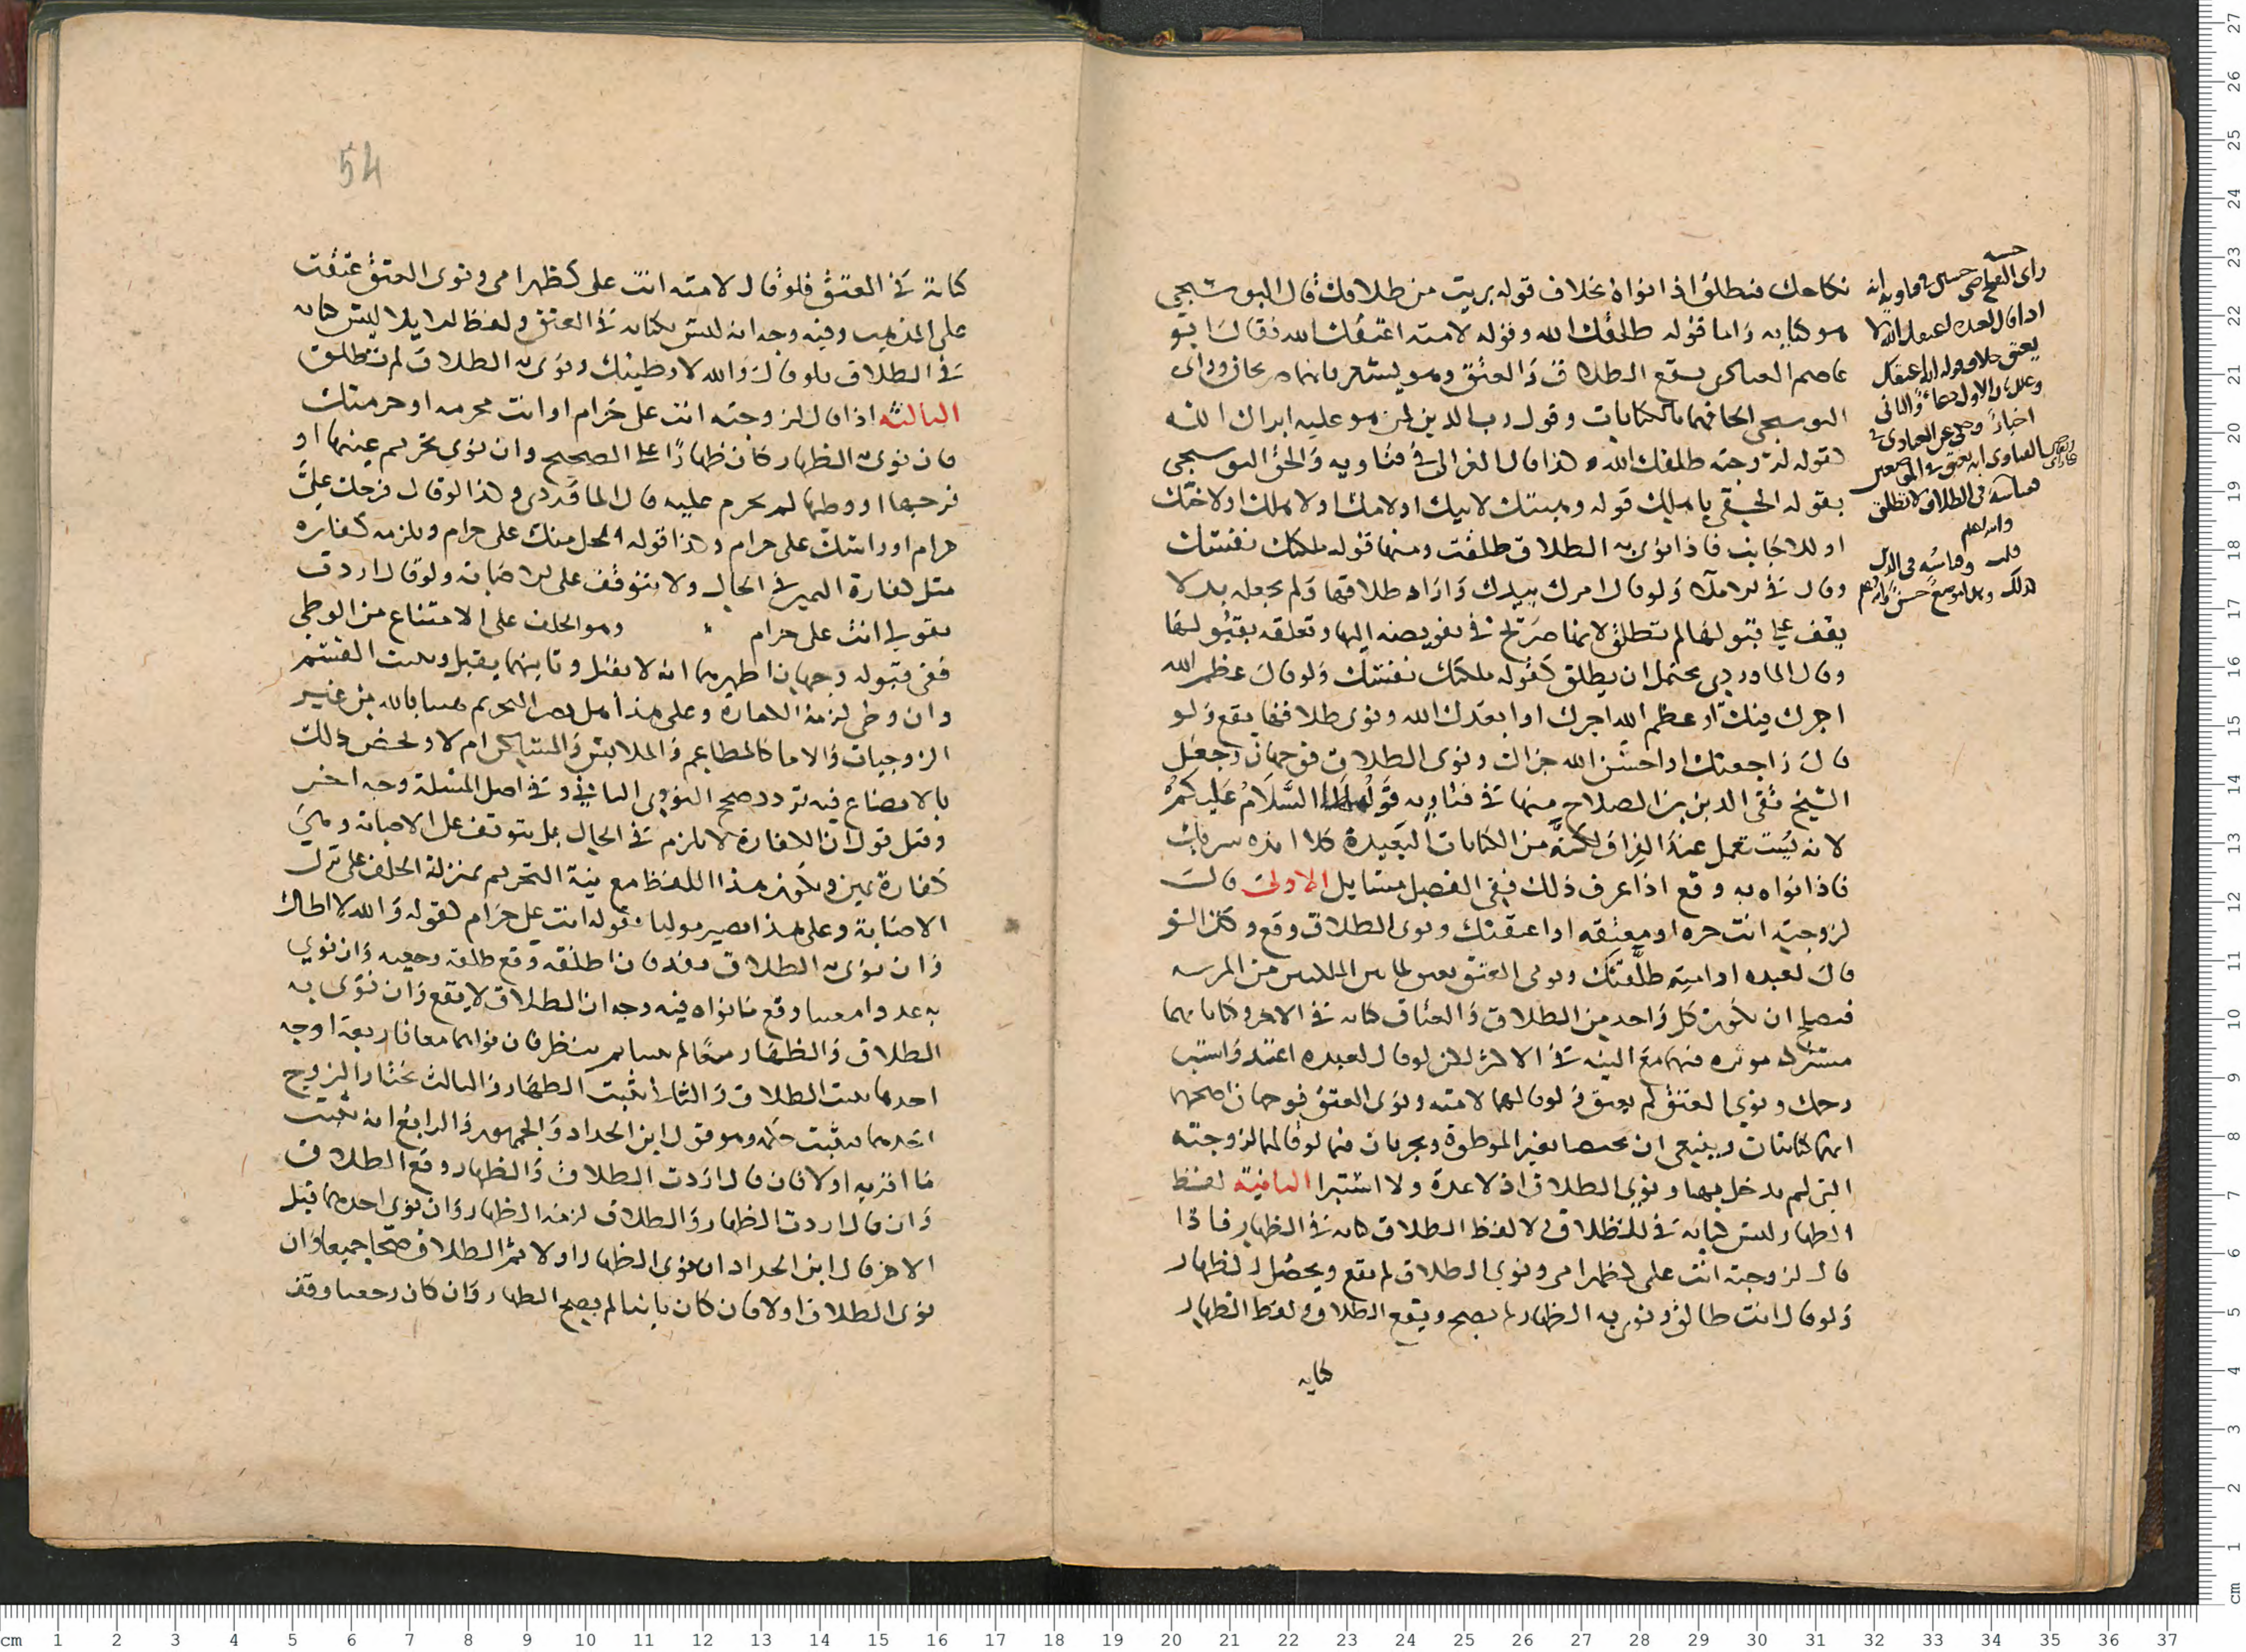 نكاحك فتطلق اذا نواه بخلاف قوله بريت من طلاقك قال البوشنجي
هو كنايه واما قوله طلقك الله وقوله لامته اعتقك الله فقال ابو
عاصم العبادي يقع الطلاق والعتق وهو يشعر بانهما صريحان وراى
البوشنجي الحاقهما بالكنايات وقول رب الدين لمن هو عليه ابراك الله
كقوله لزوجته طلقك الله هذا قال الغزالي في فتاويه والحق البوشنجي
بقوله الحقي باهلك قوله وهبتك لابيك او لامك او لاهلك او لاختك
او للاجانب فاذا نوى به الطلاق طلقت ومنها قوله ملكتك نفسك
وقال في الاملا ولو قال امرك بيدك واراد طلاقها ولم يجعله بدلا
يقف على قبولها لم تطلق لانها صريح في تفويضه اليها وتعلقه بقبولها
وقال الماوردي يحتمل ان يطلق كقوله ملكتك نفسك ولو قال عظم الله
اجرك فيك او عظم الله اجرك او ابعدك الله ونوى طلاقها يقع ولو
قال راجعتك او احسن الله جزاك ونوى الطلاق فوجهان وجعل
الشيخ تقي الدين بن الصلاح منها في فتاويه قوله السلام عليكم
لانه يستعمل عند الفراق لكنه من الكنايات البعيدة
فاذا نواه به وقع اذا عرف ذلك ففي الفصل مسايل الاولى قال
لزوجته انت حره او معتقه او اعتقتك ونوى الطلاق وقع وكذا لو
قال لعبده او امته طلقتك ونوى العتق
ان يكون كل واحد من الطلاق والعتاق كنايه في الاخر وكناياتهما
مشتركه موثره فيهما مع النيه في الاثر لكن لو قال لعبده اعتد واستبر
رحمك ونوى العتق لم يعتق ولو قالهما لامته ونوى العتق فوجهان اصحهما
انهما كنايتان وينبغي ان يختصا بغير الموطوة ويجريان فيما لو قالهما لزوجته
التي لم يدخل بها ونوى الطلاق اذ لا عدة ولا استبرا الثانية لفظ
الظهار ليس كنايه في الطلاق ولا لفظ الطلاق كنايه في الظهار فاذا
قال لزوجته انت علي كظهر امي ونوى الطلاق لم يقع ويحصل الظهار
ولو قال انت طالق ونوى به الظهار لم يصح ويقع الطلاق ولفظ الظهار
كنايه
راى القاضي حسين في فتاويه انه
اذا قال لعبده اعتقك الله لا
يعتق بخلاف قوله الله اعتقك
وعلل بان الاول دعاء والثاني
اخبار وحكي عن العبادي
انه يعتق في الموضعين
في الطلاق لا تطلق
والله اعلم
54
كناية في العتق فلو قال لامته انت علي كظهر امي ونوى العتق عتقت
على المذهب وفيه وجه انه ليس بكنايه في العتق ولفظ الايلا ليس كنايه
في الطلاق فلو قال والله لا وطيتك ونوى به الطلاق لم تطلق
الثالثة اذا قال لزوجته انت علي حرام او انت محرمه او حرمتك
فان نوى به الظهار كان ظهارًا على الصحيح وان نوى تحريم عينها او
فرجها او وطيها لم يحرم عليه قال الماوردي وكذا لو قال فرجك علي
حرام او راسك علي حرام وكذا قوله ما يحل منك علي حرام ويلزمه كفاره
مثل كفارة اليمين في الحال ولا يتوقف على الاصابة ولو قال اردت
بقولي انت علي حرام وهو الحلف على الامتناع من الوطي
ففي قبوله وجهان اظهرهما انه لا يقبل وثانيهما يقبل ويثبت القسم
وان وطى لزمته الكفارة وعلى هذا هل يصير التحريم يمينا بالله من غير
الزوجات والاما كالمطاعم والملابس والمساكن ام لا ويختص ذلك
بالابضاع فيه تردد صحح النووي الثاني وفي اصل المسئلة وجه اخر
وقيل قول ان الكفارة لا تلزم في الحال بل يتوقف على الاصابة وهي
كفارة يمين ويكون هذا اللفظ مع نية التحريم بمنزلة الحلف على ترك
الاصابة وعلى هذا يصير موليا بقوله انت علي حرام كقوله والله لا اطاك
وان نوى به الطلاق نفذ فان اطلقه وقع طلقة رجعيه وان نوى
به عددا معينا وقع ما نواه فيه وجه ان الطلاق لا يقع وان نوى به
الطلاق والظهار معًا لم ينظر فان نواهما معا فاربعة اوجه
احدها يثبت الطلاق والثاني يثبت الظهار والثالث يختار الزوج
احدهما فيثبت حكمه وهو قول ابن الحداد والجمهور والرابع انه يثبت
ما اقر به اولا فان قال اردت الطلاق والظهار وقع الطلاق
وان قال اردت الظهار والطلاق لزمه الظهار وان نوى احدهما قبل
الاخر قال ابن الحداد ان نوى الظهار اولا ثم الطلاق صحا جميعا وان
نوى الطلاق اولا فان كان باينا لم يصح الظهار وان كان رجعيا وقف